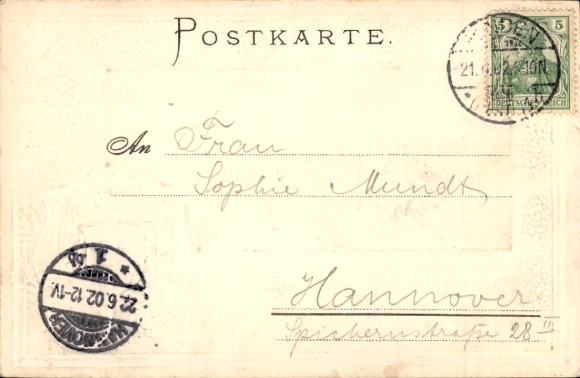 POSTKARTE.
5 5
21.6.02. 10N
DEUTSCHES REICH
An Frau
Sophie Mundt
Hannover
Spichernstraße 28 III
HANNOVER
22.6.02.12-1V.
* 1 *